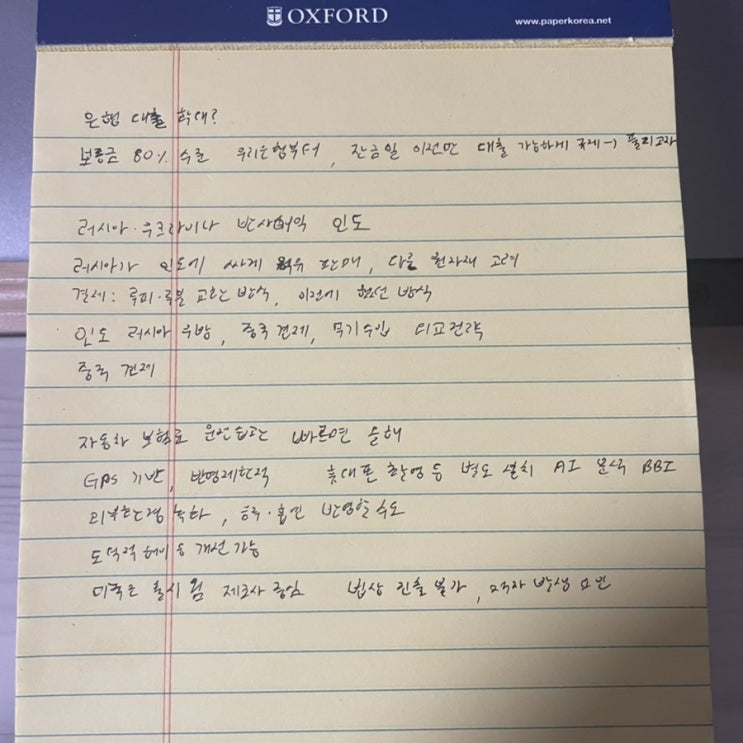 OXFORD www.paperkorea.net
은행 대출 확대?
보증금 80% 수준 우리은행부터, 잔금일 이전만 대출 가능하게 규제→ 풀리고자
러시아·우크라이나 반사이익 인도
러시아가 인도에 싸게 원유 판매, 다른 원자재 고려
결제: 루피·루블 교환 방식, 이전에 했던 방식
인도 러시아 우방, 중국 견제, 무기수입 외교전략
중국 견제
자동차 보험료 운전습관 빠르면 올해
GPS 기반, 반영제한적 휴대폰 촬영 등 별도 설치 AI 분석 BBI
외부환경 학화, 하루·흡연 반영할 수도
도덕적 해이 등 개선 가능
미국은 출시 됨 제조사 중심 법상 진출 불가, 적자 발생 요인